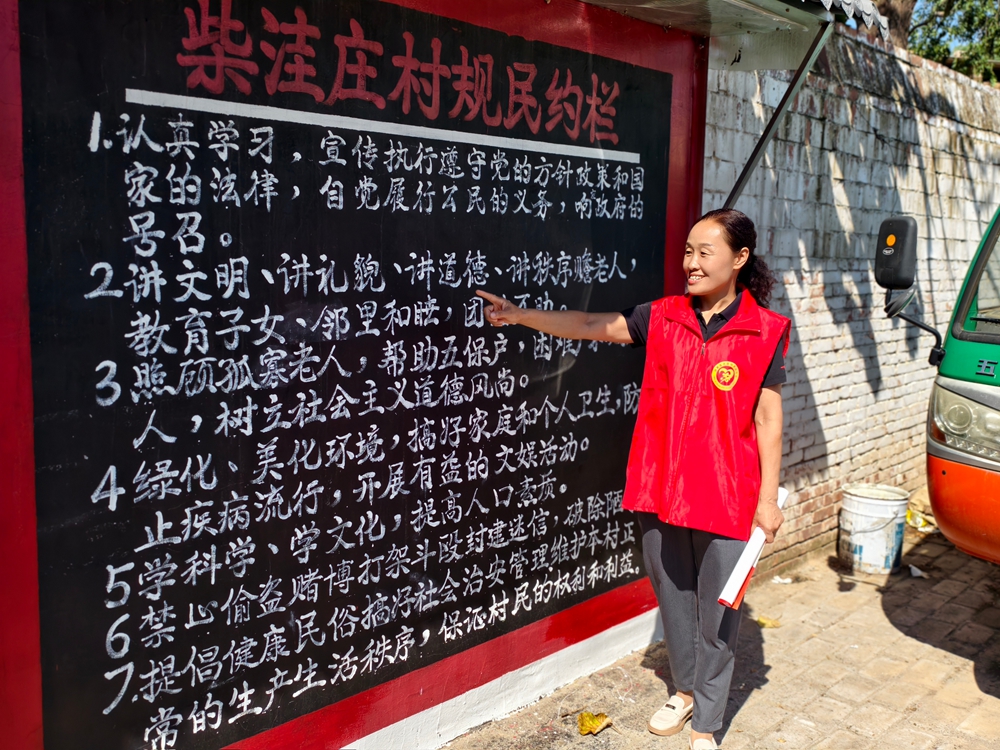 柴洼庄村规民约栏
1.认真学习，宣传执行遵守党的方针政策和国
家的法律，自觉履行公民的义务，响政府的
号召。
2讲文明、讲礼貌、讲道德、讲秩序赡老人，
教育子女、邻里和睦，团 互助。
3照顾孤寡老人，帮助五保户，困难
人，树立社会主义道德风尚。
4绿化、美化环境，搞好家庭和个人卫生，防
止疾病流行，开展有益的文娱活动。
5学科学、学文化，提高人口素质。
6禁止偷盗赌博打架斗殴封建迷信，破除陋
7.提倡健康民俗搞好社会治安管理维护本村正
常的生产生活秩序，保证村民的权利和利益。
五